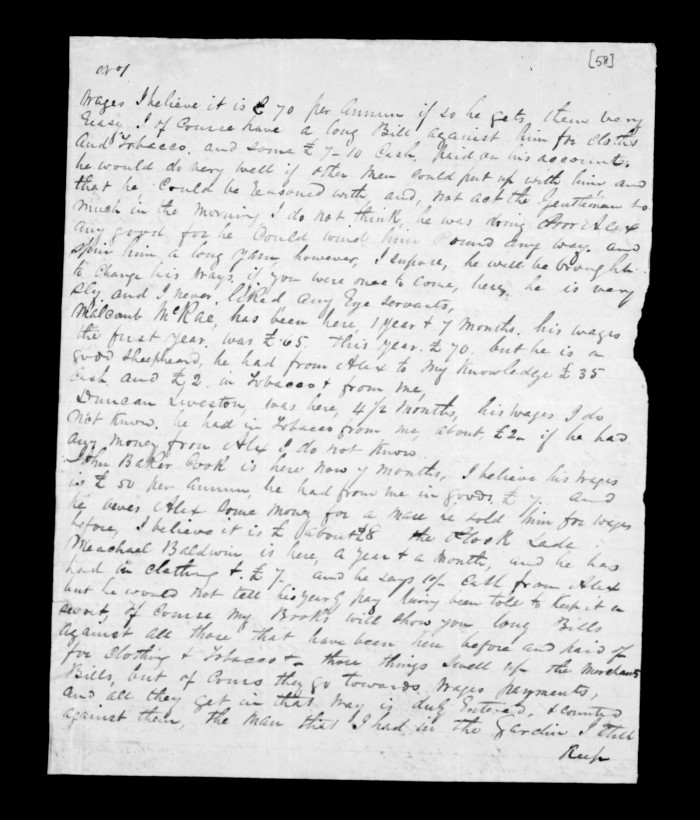 [58]
Wages I believe it is £70 per Annum if so he gets them very
Easy, I of Course have a long Bill against him for Cloths
And Tobacco. and some £7-10 Cash, paid on his account,
he would do very well if other men could put up with him and
that he Could be reasoned with, and, not act the Gentleman to
much in the morning, I do not think, he was doing Poor Alex
any good, for he Could wind him Round any way, and
spin him a long yarn, however, I supose, he will be brought
to change his ways, if you were once to Come, here, he is very
sly, and I never, liked any Eye servants,
Malcomb McRae, has been here, 1 year & 7 months. his wages
the first year, was £65. this year. £70. but he is a
good shepheard, he had from Alex to my Knowledge £35
Cash and £2. in Tobacco & from me,
Duncan Liveston, was here, 4½ months, his wages I do
not know. he had in Tobacco from me, about, £2. if he had
any money from Alex I do not know.
John Baker Cook is here now 7 months, I believe his wages
is £50 per Annum, he had from me in goods, £7. and
he owes Alex some money for a mare he sold him for wages
before, I believe it is £ about £8 the
Meachael Baldwin is here, a year & a month, and he has
had in clothing &. £7. and he says Cash from Alex
but he would not tell his yearly pay having been told to Keep it a
secret, of Course my Books will show you long Bills
against all those that have been here before and paid of
for Clothing & Tobacco & those things swell up the Merchants
Bills, but of Cours they go towards, wages payments,
and all they get in that way is duly Entered, & Counted
against them, the man that I had in the Garden I still
Keep